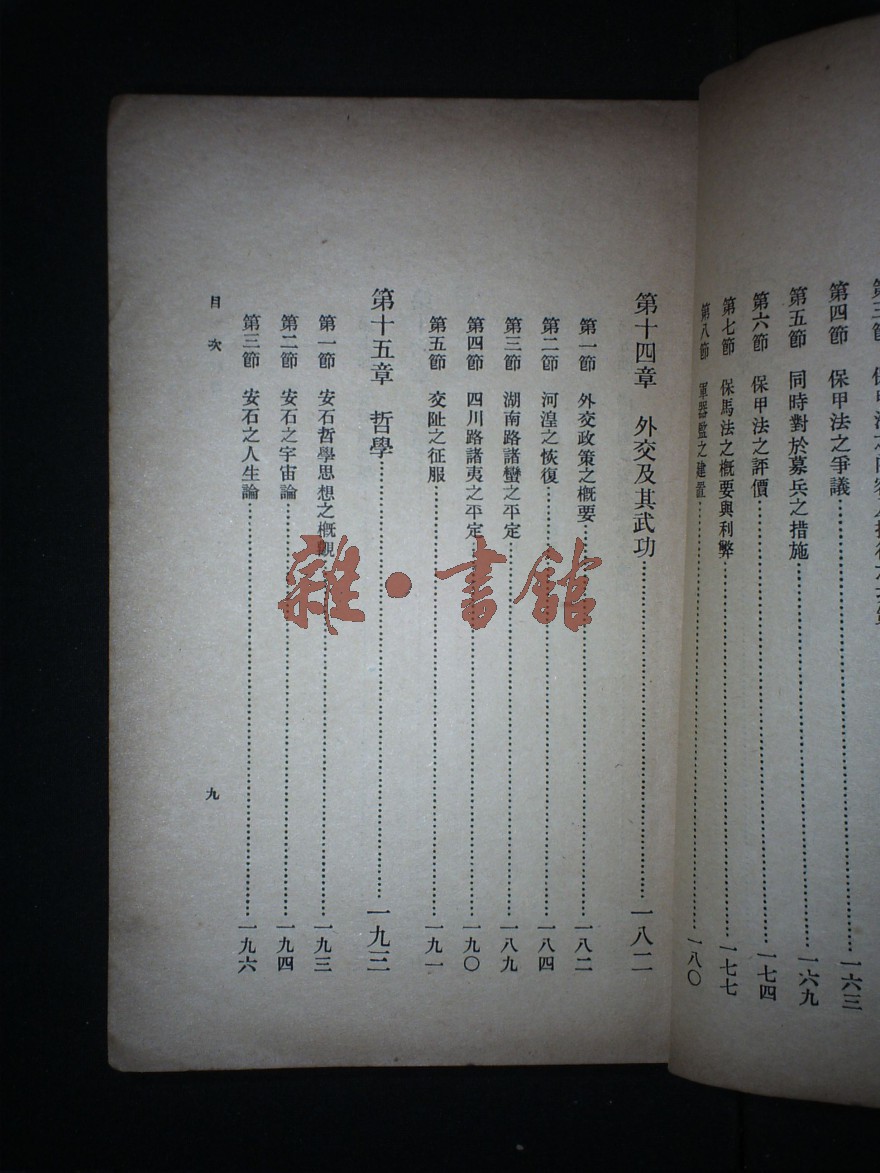 第四節 保甲法之爭議 一六三
第五節 同時對於募兵之措施 一六九
第六節 保甲法之評價 一七四
第七節 保馬法之概要與利弊 一七七
第八節 軍器監之建置 一八〇
第十四章 外交及其武功 一八二
第一節 外交政策之概要 一八二
第二節 河湟之恢復 一八四
第三節 湖南路諸蠻之平定 一八九
第四節 四川路諸夷之平定 一九〇
第五節 交阯之征服 一九一
第十五章 哲學 一九三
第一節 安石哲學思想之概觀 一九三
第二節 安石之宇宙論 一九四
第三節 安石之人生論 一九六
目次
九
雜·書館